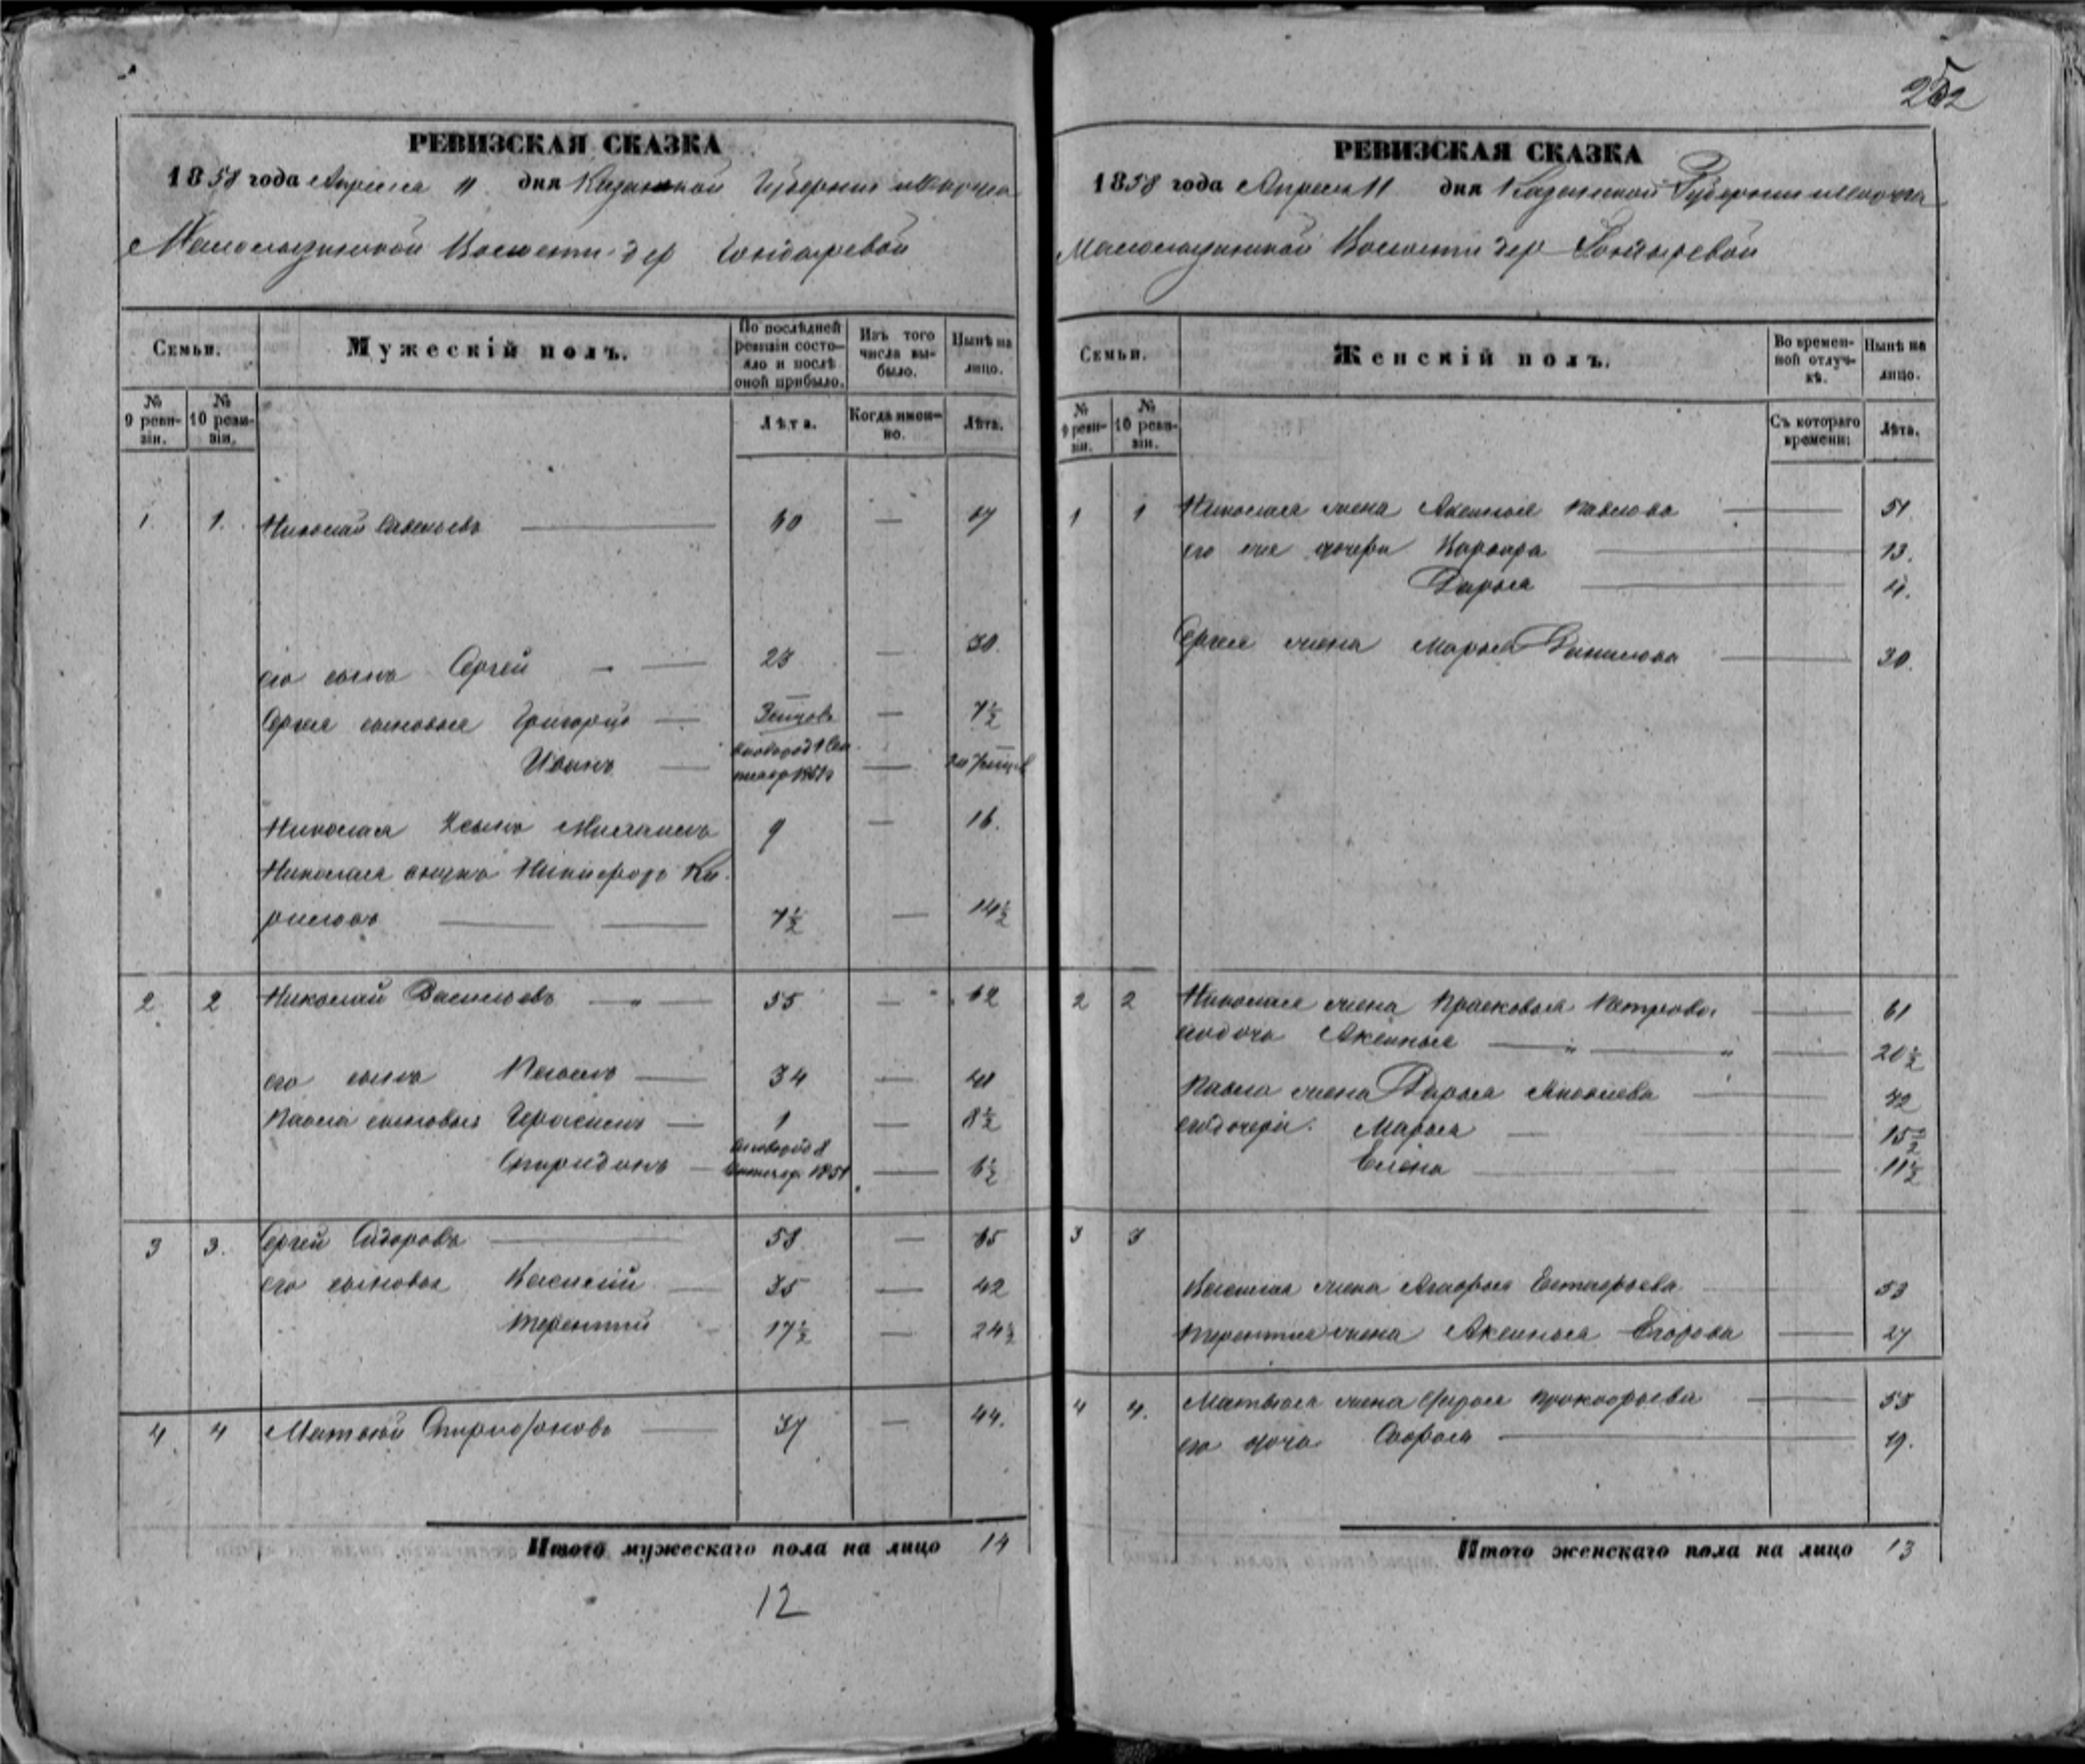 252
РЕВИЗСКАЯ СКАЗКА
1858 года Апреля 11 дня Казанской Губернии
Волости дер
Семьи.
Мужескій полъ.
По послѣдней ревизіи состояло и послѣ оной прибыло.
Изъ того числа выбыло.
Нынѣ на лицо.
№ 9 ревизіи.
№ 10 ревизіи.
Лѣта.
Когда именно.
Лѣта.
1. 1. Николай Савельевъ 60 — 67
его сынъ Сергей — 23 — 30.
Сергея сыновья Григорій — — 7½
Иванъ —
Николая 2 сынъ 9 — 16.
Николая внукъ Никифоръ Ки-
риловъ 7½ — 14½
2 2 Николай Васильевъ 55 — 62
его сынъ Павелъ — 34 — 41
Павла сыновья Герасимъ — 1 — 8½
Спиридонъ — 1851 — 6½
3 3. Сергей Сидоровъ 58 — 65
его сыновья Василий — 35 — 42
Терентий 17½ — 24½
4 4 Матвей — 37 — 44.
Итого мужескаго пола на лицо 14
12
РЕВИЗСКАЯ СКАЗКА
1858 года Апреля 11 дня Казанской Губернии
Волости дер
Семьи.
Женскій полъ.
Во временной отлучкѣ.
Нынѣ на лицо.
№ 9 ревизіи.
№ 10 ревизіи.
Съ котораго времени:
Лѣта.
1 1 Николая жена Аксинья Павлова — 51
его же дочери Варвара — 13.
Дарья — 4.
Сергея жена Марья Данилова — 30.
2 2 Николая жена Прасковья Петрова — 61
его дочь Аксинья — 20½
Павла жена Дарья Яковлева — 42
его дочери. Марья — 15½
Елена — 11½
3 3
Василия жена Агафья Евстафьева 53
Терентия жена Аксинья Егорова — 27
4 4. Матвея жена Прокофьева — 53
его дочь Софья — 19.
Итого женскаго пола на лицо 13